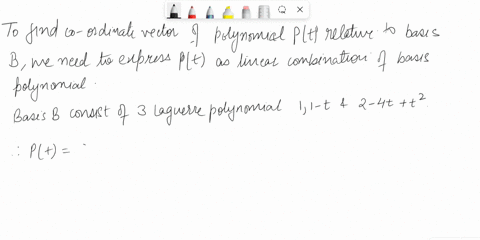 To find co-ordinate vector of polynomial P(t) relative to basis
B, we need to express P(t) as linear combination of basis
polynomial.
Basis B consist of 3 Laguerre polynomial 1, 1-t & 2-4t+t²
∴ P(t) =